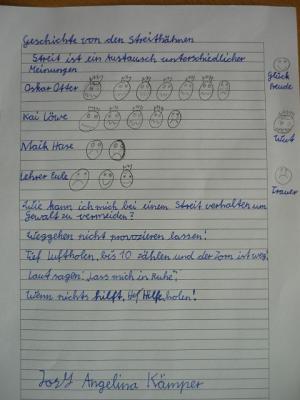 Geschichte von den Streithähnen
Streit ist ein Austausch unterschiedlicher
Meinungen
Glück
Freude
Oskar Otter
Kai Löwe
Wut
Maik Hase
Lehrer Eule
Trauer
Wie kann ich mich bei einem Streit verhalten um
Gewalt zu vermeiden?
Weggehen nicht provozieren lassen!
Tief Luftholen, bis 10 zählen und der Zorn ist weg!
Laut sagen: "Lass mich in Ruhe",
Wenn nichts hilft, Hilfe holen!
Angelina Kämper